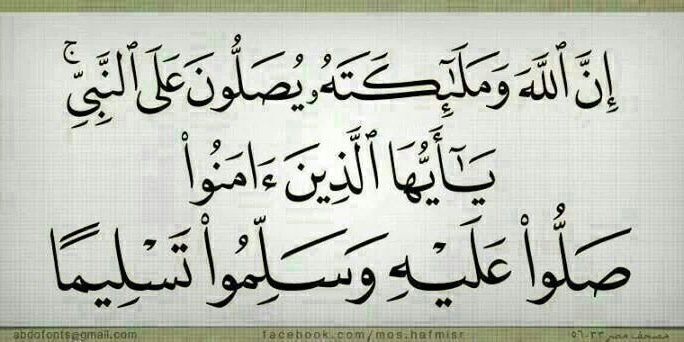 إِنَّ ٱللَّهَ وَمَلَٰٓئِكَتَهُۥ يُصَلُّونَ عَلَى ٱلنَّبِىِّ ۚ
يَٰٓأَيُّهَا ٱلَّذِينَ ءَامَنُوا۟
صَلُّوا۟ عَلَيْهِ وَسَلِّمُوا۟ تَسْلِيمًا
abdofonts@gmail.com facebook.com/mos.hafmisr مصحف مصر ٣٣-٥٦